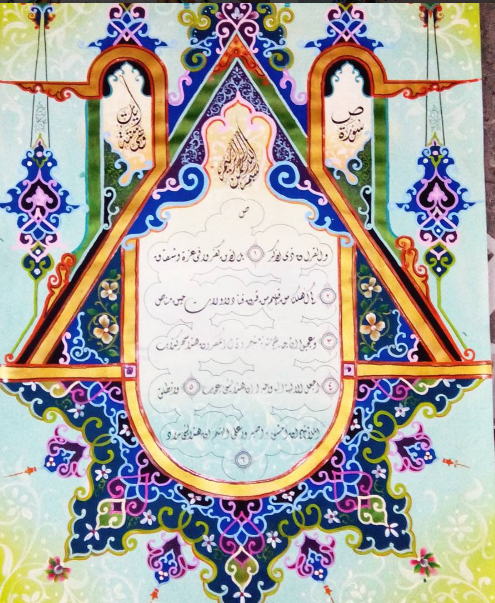 ص
سورة
بسم الله الرحمن الرحيم
ص
والقران ذى الذكر ١ بل الذين كفروا فى عزة وشقاق
٢ كم اهلكنا من قبلهم من قرن فنادوا ولات حين مناص
٣ وعجبوا ان جاءهم منذر منهم وقال الكفرون هذا سحر كذاب
٤ اجعل الالهة الها واحدا ان هذا لشى عجاب ٥ وانطلق
الملا منهم ان امشوا واصبروا على الهتكم ان هذا لشى يراد
٦